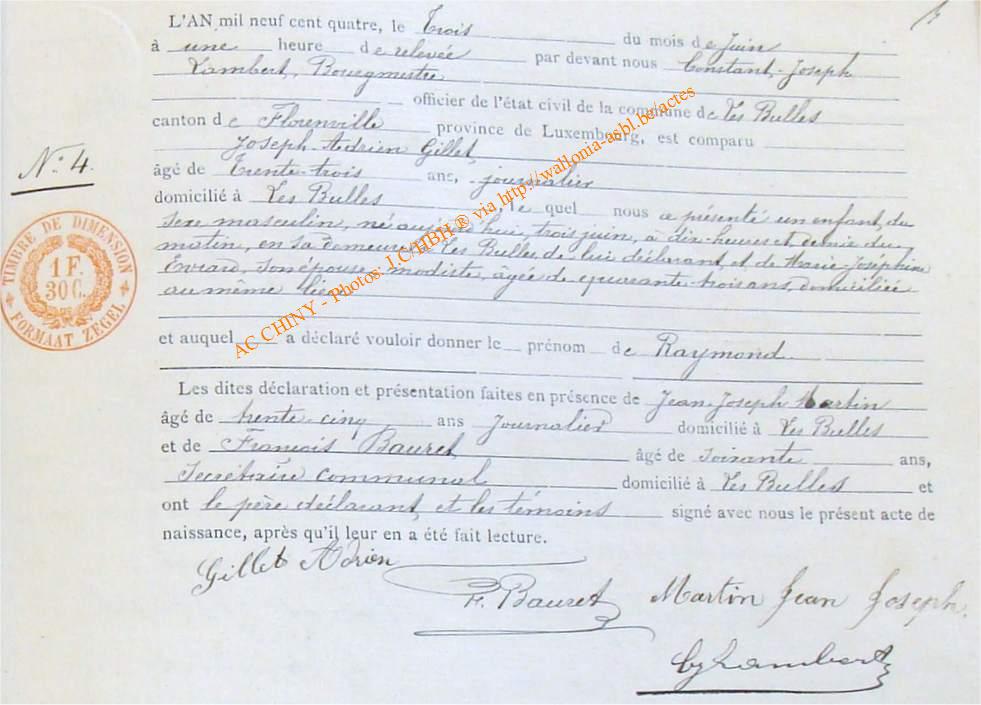 L'AN mil neuf cent quatre, le Trois du mois de Juin
à une heure de relevée par devant nous Constant-Joseph
Lambert, Bourgmestre
officier de l'état civil de la commune de Les Bulles
canton de Florenville province de Luxembourg, est comparu
Joseph-Adrien Gillet,
N° 4.
âgé de Trente-trois ans, journalier
domicilié à Les Bulles, le quel nous a présenté un enfant du
sexe masculin, né aujourd'hui, trois juin, à dix heures et demie du
matin, en sa demeure à Les Bulles de lui déclarant, et de Marie-Joséphine
Evrard, son épouse, modiste, âgée de quarante-trois ans, domiciliée
au même lieu
TIMBRE DE DIMENSION
1 F.
30 C.
FORMAAT ZEGEL
et auquel a déclaré vouloir donner le prénom de Raymond
Les dites déclaration et présentation faites en présence de Jean-Joseph Martin
âgé de trente-cinq ans Journalier domicilié à Les Bulles
et de François Bauret âgé de soixante ans,
Secrétaire communal domicilié à Les Bulles et
ont le père déclarant et les témoins signé avec nous le présent acte de
naissance, après qu'il leur en a été fait lecture.
Gillet Adrien
F. Bauret Martin Jean Joseph.
Lambert
AC CHINY - Photos- J.C/HBH ® via http://wallonia-asbl.be/actes